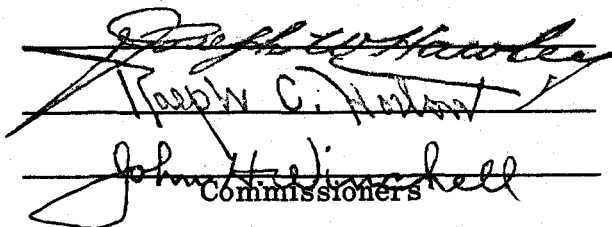 Joseph W Hawley
Ralph C.
John H. Winchell
Commissioners